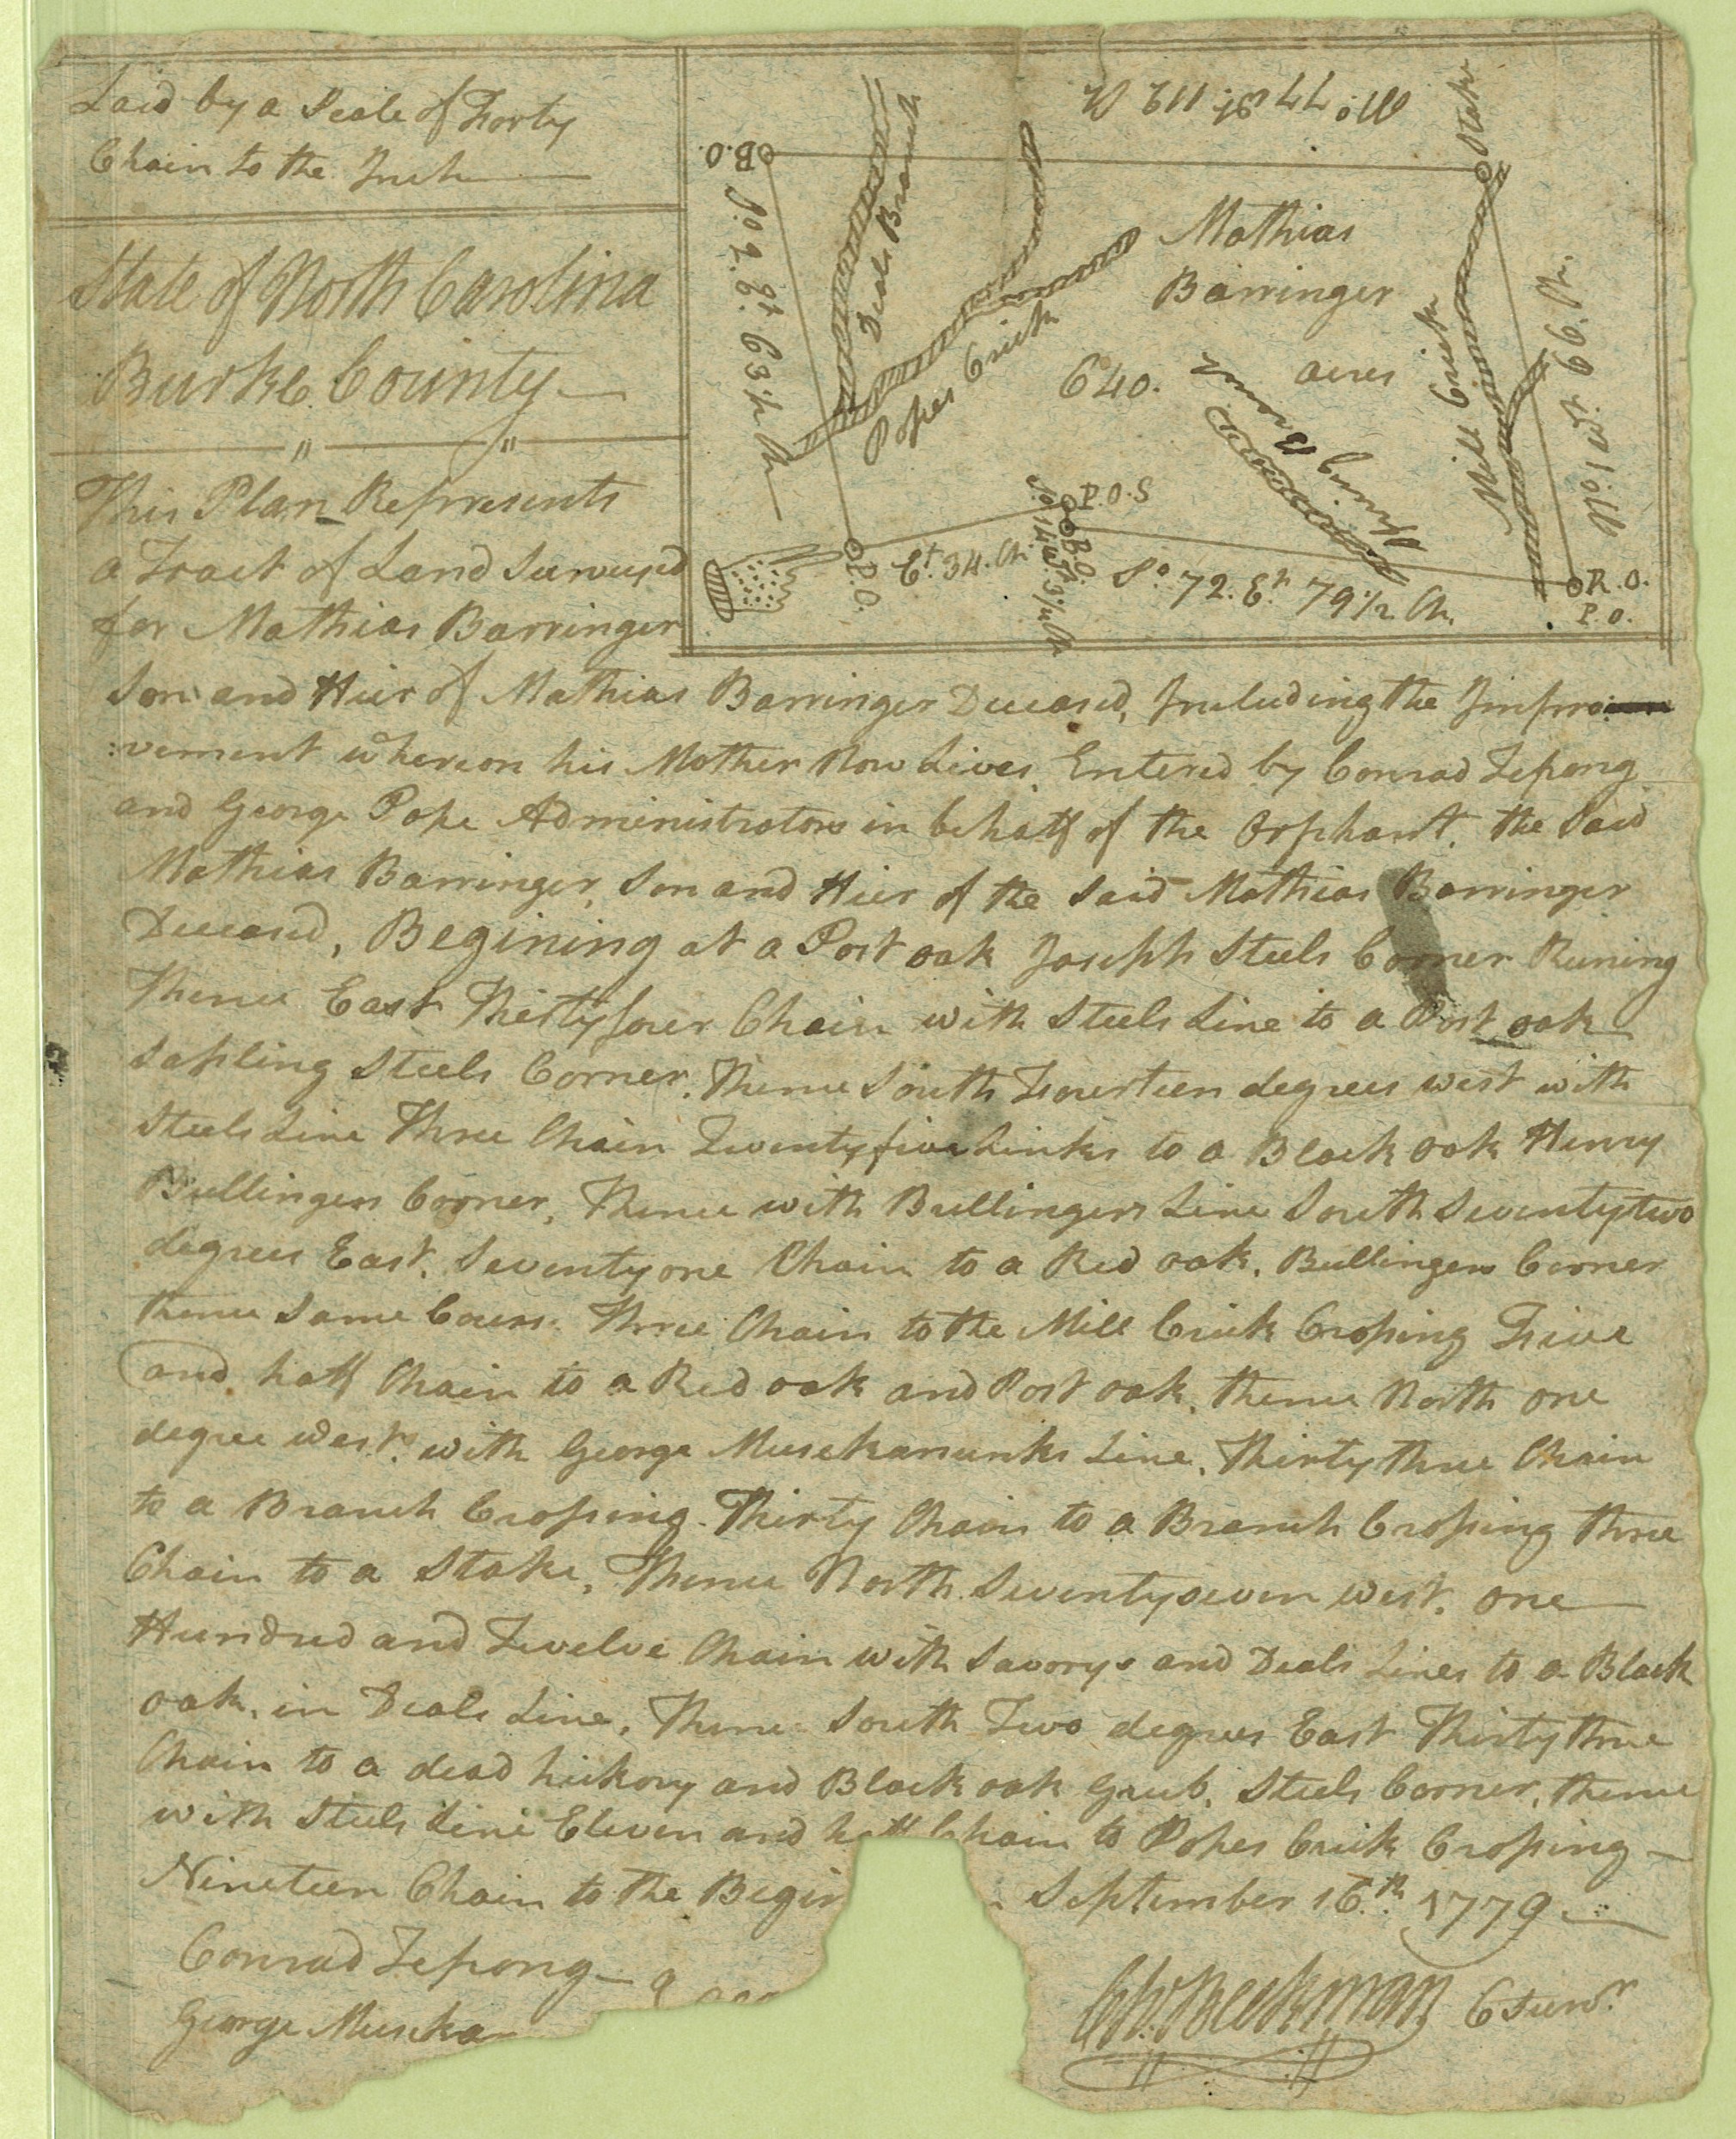 Laid by a Scale of Forty
Chain to the Inch
State of North Carolina
Burke County
This Plan Represents
a Tract of Land Surveyed
for Mathias Barringer
B.O.
No 77 Wt 112 Ch
Stake
So 2. Et. 63 1/2 Ch
Deals Branch
Popes Crick
Mathias
Barringer
640. acres
Spring Branch
Mill Crick
No 1 Wt. 66. Ch.
P.O.
Et. 34. Ch.
P.O.S
B.O.
So. 14 Wt 3 1/4 Ch
So 72. Et 79 1/2 Ch.
R.O.
P.O.
Son and Hier of Mathias Barringer Deceased, Including the Impro
:vement whereon his Mother Now Lives, Entered by Conrad Tepong
and George Pope Administrators in behalf of the Orphant, the Said
Mathias Barringer, Son and Hier of the Said Mathias Barringer
Deceased, Begining at a Post oak Joseph Steels Corner Runing
Thence East Thirtyfour Chain with Steels Line to a Post oak
Sapling Steels Corner, Thence South Fourteen degrees west with
Steels Line Three Chain Twentyfive Links to a Black oak Henry
Bullingers Corner, Thence with Bullingers Line South Seventytwo
degrees East, Seventyone Chain to a Red oak, Bullingers Corner
thence Same Cours. Three Chain to the Mill Crick Crossing Five
and half Chain to a Red oak and Post oak, thence North one
degree West, with George Muschanunks Line, Thirtythree Chain
to a Branch Crossing. Thirty Chain to a Branch Crossing three
Chain to a Stake, Thence North Seventyseven west, one
Hundred and Twelve Chain with Savorys and Deals Lines to a Black
oak, in Deals Line, Thence South Two degrees East Thirtythree
Chain to a dead hickory and Black oak Grub, Steels Corner, thence
with Steels Line Eleven and half Chain to Popes Crick Crossing
Nineteen Chain to the Begin September 16.th 1779
Conrad Tepong
George Muscka
Ch. Beekman C Survr.